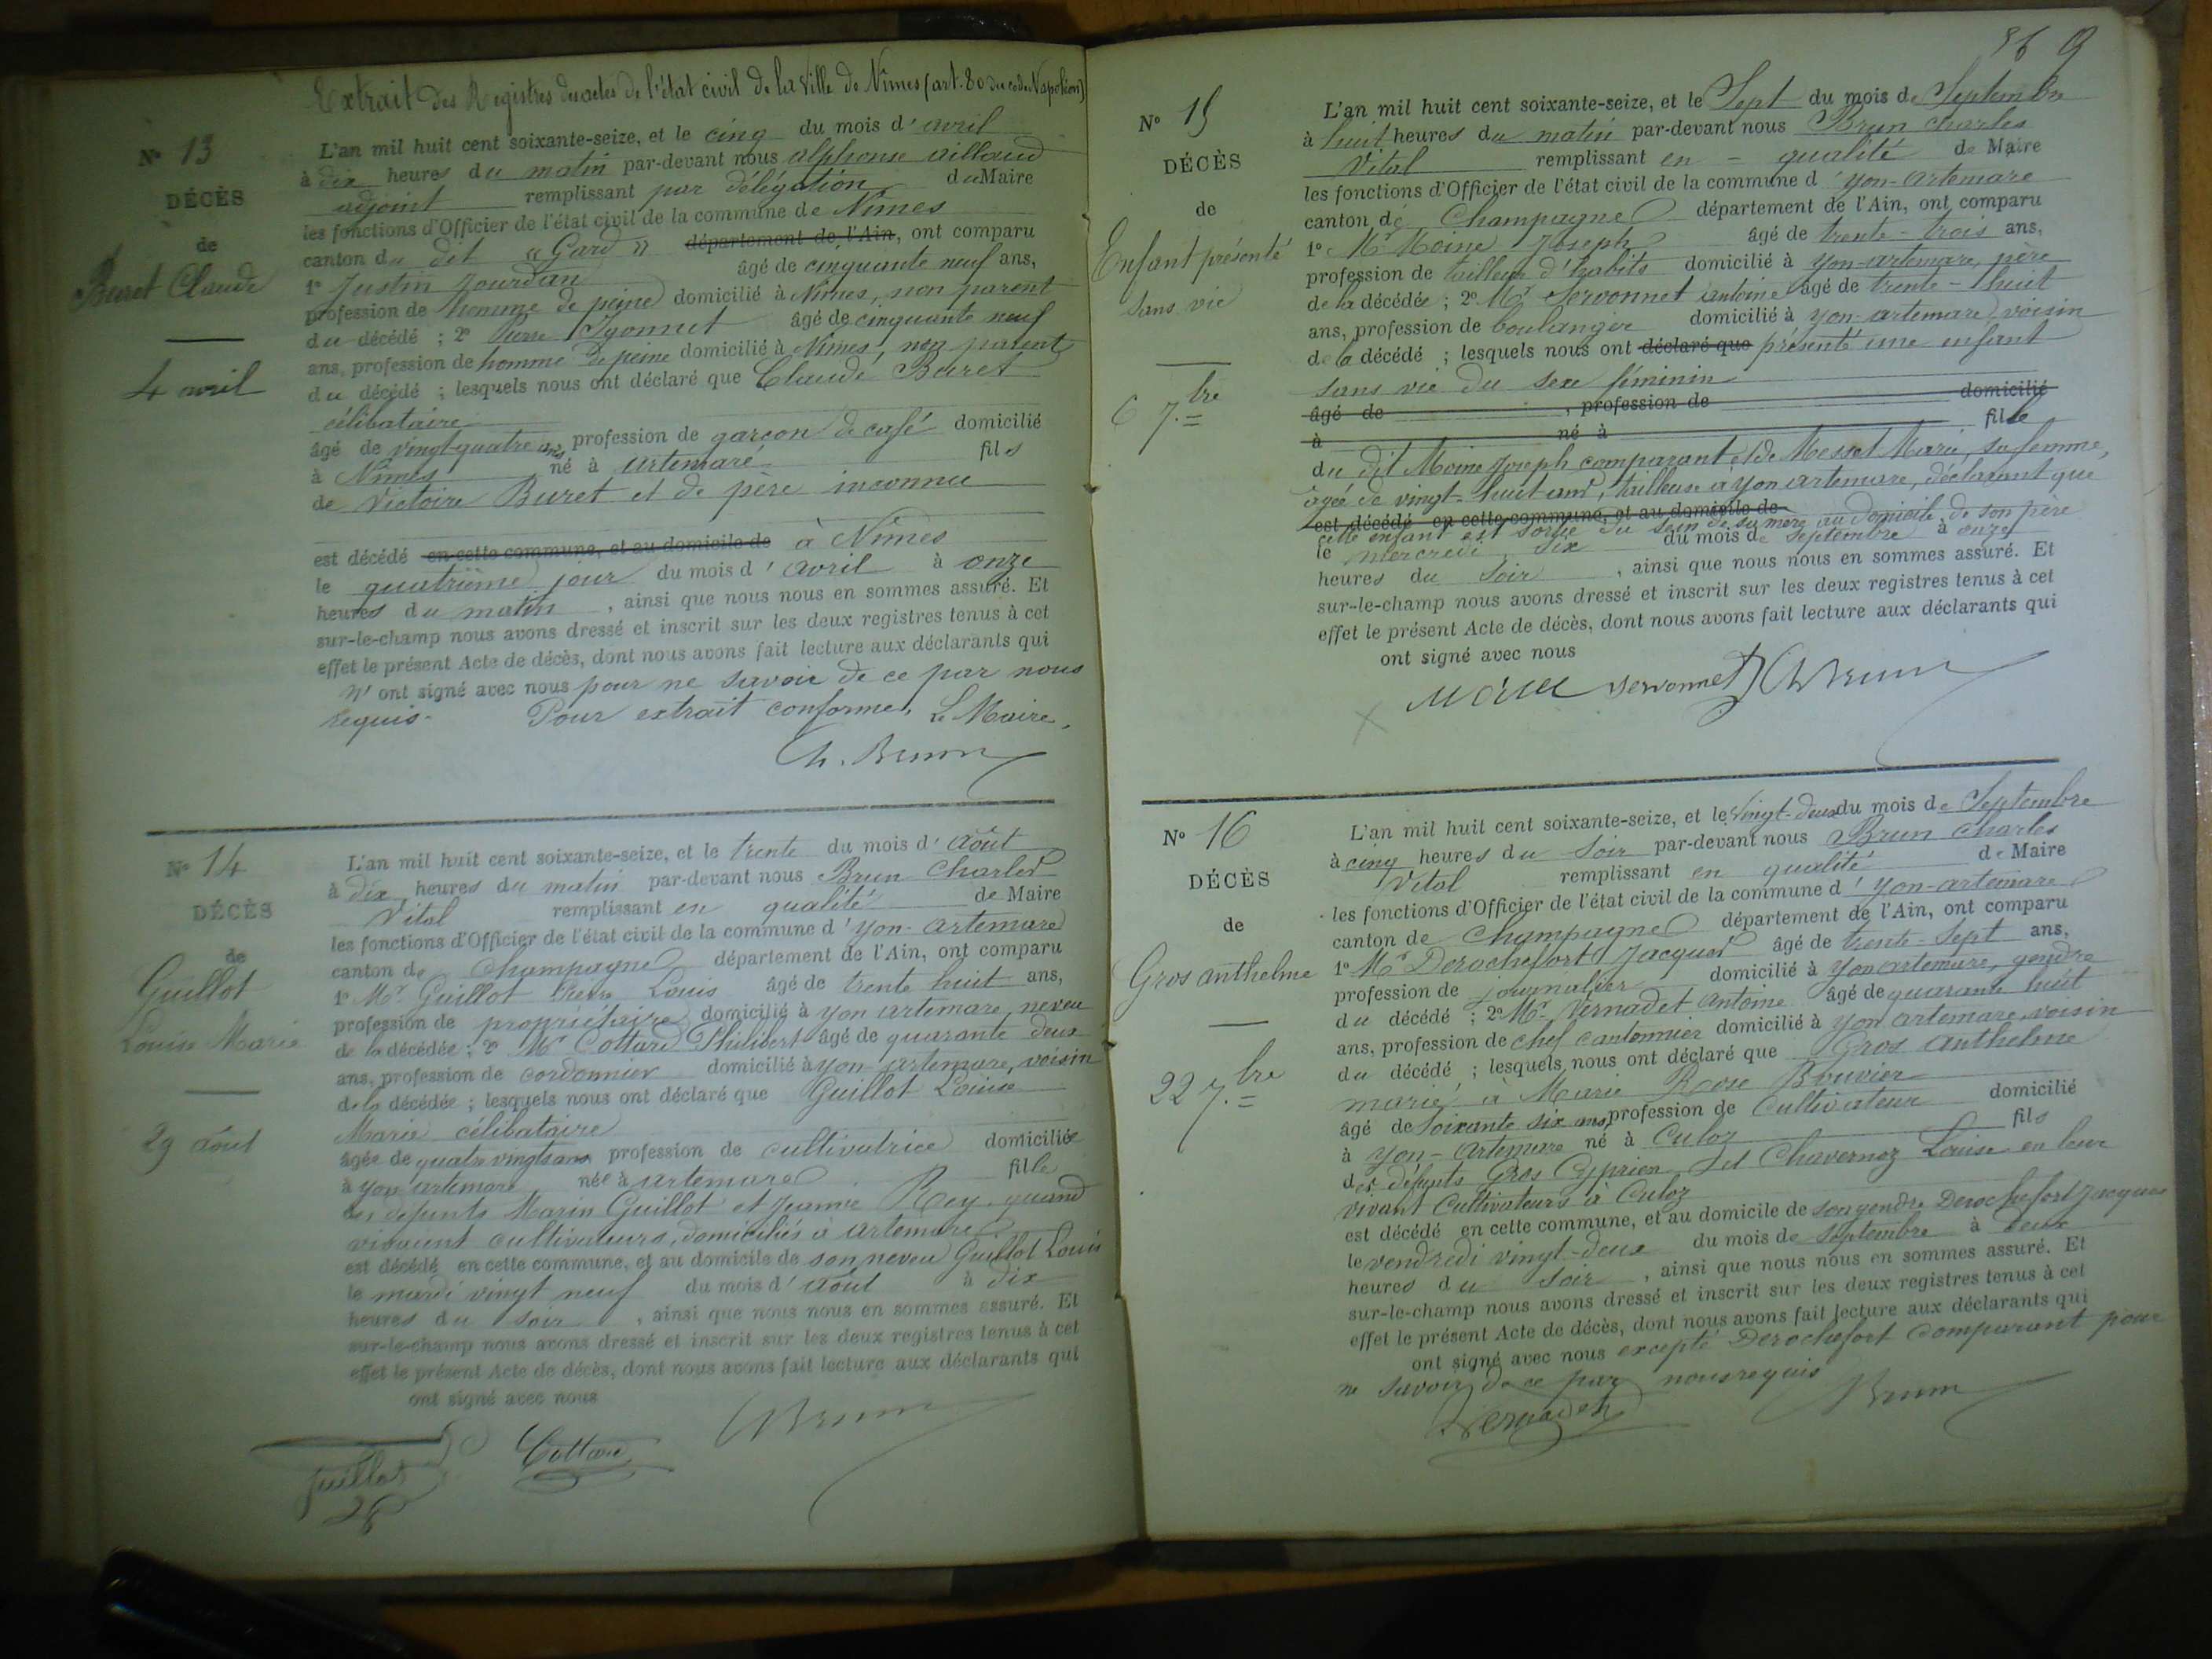 Extrait des Registres des actes de l'état civil de la Ville de Nîmes (art. 80 du code Napoléon)
N° 13
DÉCÈS
de
Buret Claude
4 avril
L'an mil huit cent soixante-seize, et le cinq du mois d'avril
à dix heures du matin par-devant nous alphonse aillaud
adjoint remplissant par délégation du Maire
les fonctions d'Officier de l'état civil de la commune de Nimes
canton du dit « Gard » département de l'Ain, ont comparu
1° Justin Jourdan âgé de cinquante neuf ans,
profession de homme de peine domicilié à Nimes, non parent
du décédé ; 2° Pierre âgé de cinquante neuf
ans, profession de homme de peine domicilié à Nimes, non parent
du décédé ; lesquels nous ont déclaré que Claude Buret
célibataire
âgé de vingt-quatre ans profession de garçon de café domicilié
à Nimes né à artemare fils
de Victoire Buret et de père inconnu
est décédé en cette commune, et au domicile de à Nîmes
le quatrième jour du mois d'avril à onze
heures du matin, ainsi que nous nous en sommes assuré. Et
sur-le-champ nous avons dressé et inscrit sur les deux registres tenus à cet
effet le présent Acte de décès, dont nous avons fait lecture aux déclarants qui
n'ont signé avec nous pour ne savoir de ce par nous
requis. Pour extrait conforme, Le Maire,
Ch. Brun
N° 14
DÉCÈS
de
Guillot
Louise Marie
29 août
L'an mil huit cent soixante-seize, et le trente du mois d'août
à dix heures du matin par-devant nous Brun Charles
Vital remplissant en qualité de Maire
les fonctions d'Officier de l'état civil de la commune d'yon-artemare
canton de Champagne département de l'Ain, ont comparu
1° Mr Guillot Pierre Louis âgé de trente huit ans,
profession de propriétaire domicilié à yon artemare, neveu
de la décédée ; 2° Mr Cottard Philibert âgé de quarante deux
ans, profession de cordonnier domicilié à yon-artemare, voisin
de la décédée ; lesquels nous ont déclaré que Guillot Louise
Marie célibataire
âgée de quatre vingts ans profession de cultivatrice domiciliée
à yon artemare née à artemare fille
des défunts Marin Guillot et Jeanne Rey quand
vivaient cultivateurs, domiciliés à artemare
est décédé en cette commune, et au domicile de son neveu Guillot Louis
le mardi vingt neuf du mois d'août à dix
heures du soir, ainsi que nous nous en sommes assuré. Et
sur-le-champ nous avons dressé et inscrit sur les deux registres tenus à cet
effet le présent Acte de décès, dont nous avons fait lecture aux déclarants qui
ont signé avec nous
Guillot Cottard ChBrun
9
N° 15
DÉCÈS
de
Enfant présenté
sans vie
6 7.bre
L'an mil huit cent soixante-seize, et le Sept du mois de Septembre
à huit heures du matin par-devant nous Brun Charles
Vital remplissant en - qualité de Maire
les fonctions d'Officier de l'état civil de la commune d'yon-artemare
canton de Champagne département de l'Ain, ont comparu
1° Mr Moine Joseph âgé de trente-trois ans,
profession de tailleur d'habits domicilié à yon-artemare, père
de la décédée ; 2° Mr Servonnet antoine âgé de trente-huit
ans, profession de boulanger domicilié à yon-artemare, voisin
de la décédé ; lesquels nous ont déclaré que présenté une enfant
sans vie du sexe féminin
âgé de , profession de domicilié
à né à fille
du dit Moine Joseph comparant et de Marie, sa femme,
agée de vingt-huit ans, tailleuse à yon artemare, déclarant que
est décédé en cette commune, et au domicile de
cette enfant est sortie du sein de sa mère au domicile de son père
le mercredi six du mois de septembre à onze
heures du soir, ainsi que nous nous en sommes assuré. Et
sur-le-champ nous avons dressé et inscrit sur les deux registres tenus à cet
effet le présent Acte de décès, dont nous avons fait lecture aux déclarants qui
ont signé avec nous
Moine Servonnet ChBrun
N° 16
DÉCÈS
de
Gros anthelme
22 7.bre
L'an mil huit cent soixante-seize, et le Vingt-deux du mois de Septembre
à cinq heures du soir par-devant nous Brun Charles
Vital remplissant en qualité de Maire
les fonctions d'Officier de l'état civil de la commune d'yon-artemare
canton de Champagne département de l'Ain, ont comparu
1° Mr Derochefort Jacques âgé de trente-sept ans,
profession de journalier domicilié à yon artemare, gendre
du décédé ; 2° Mr Vernadet antoine âgé de quarante huit
ans, profession de chef cantonnier domicilié à yon artemare, voisin
du décédé ; lesquels nous ont déclaré que Gros anthelme
marié à Marie Rose Bouvier
âgé de soixante six ans, profession de Cultivateur domicilié
à yon-artemare né à Culoz fils
des défunts Gros Cyprien et Chavernoz Louise en leur
vivant Cultivateurs à Culoz
est décédé en cette commune, et au domicile de son gendre Derochefort Jacques
le vendredi vingt-deux du mois de septembre à deux
heures du soir, ainsi que nous nous en sommes assuré. Et
sur-le-champ nous avons dressé et inscrit sur les deux registres tenus à cet
effet le présent Acte de décès, dont nous avons fait lecture aux déclarants qui
ont signé avec nous excepté Derochefort comparant pour
ne savoir de ce par nous requis
Vernadet Brun